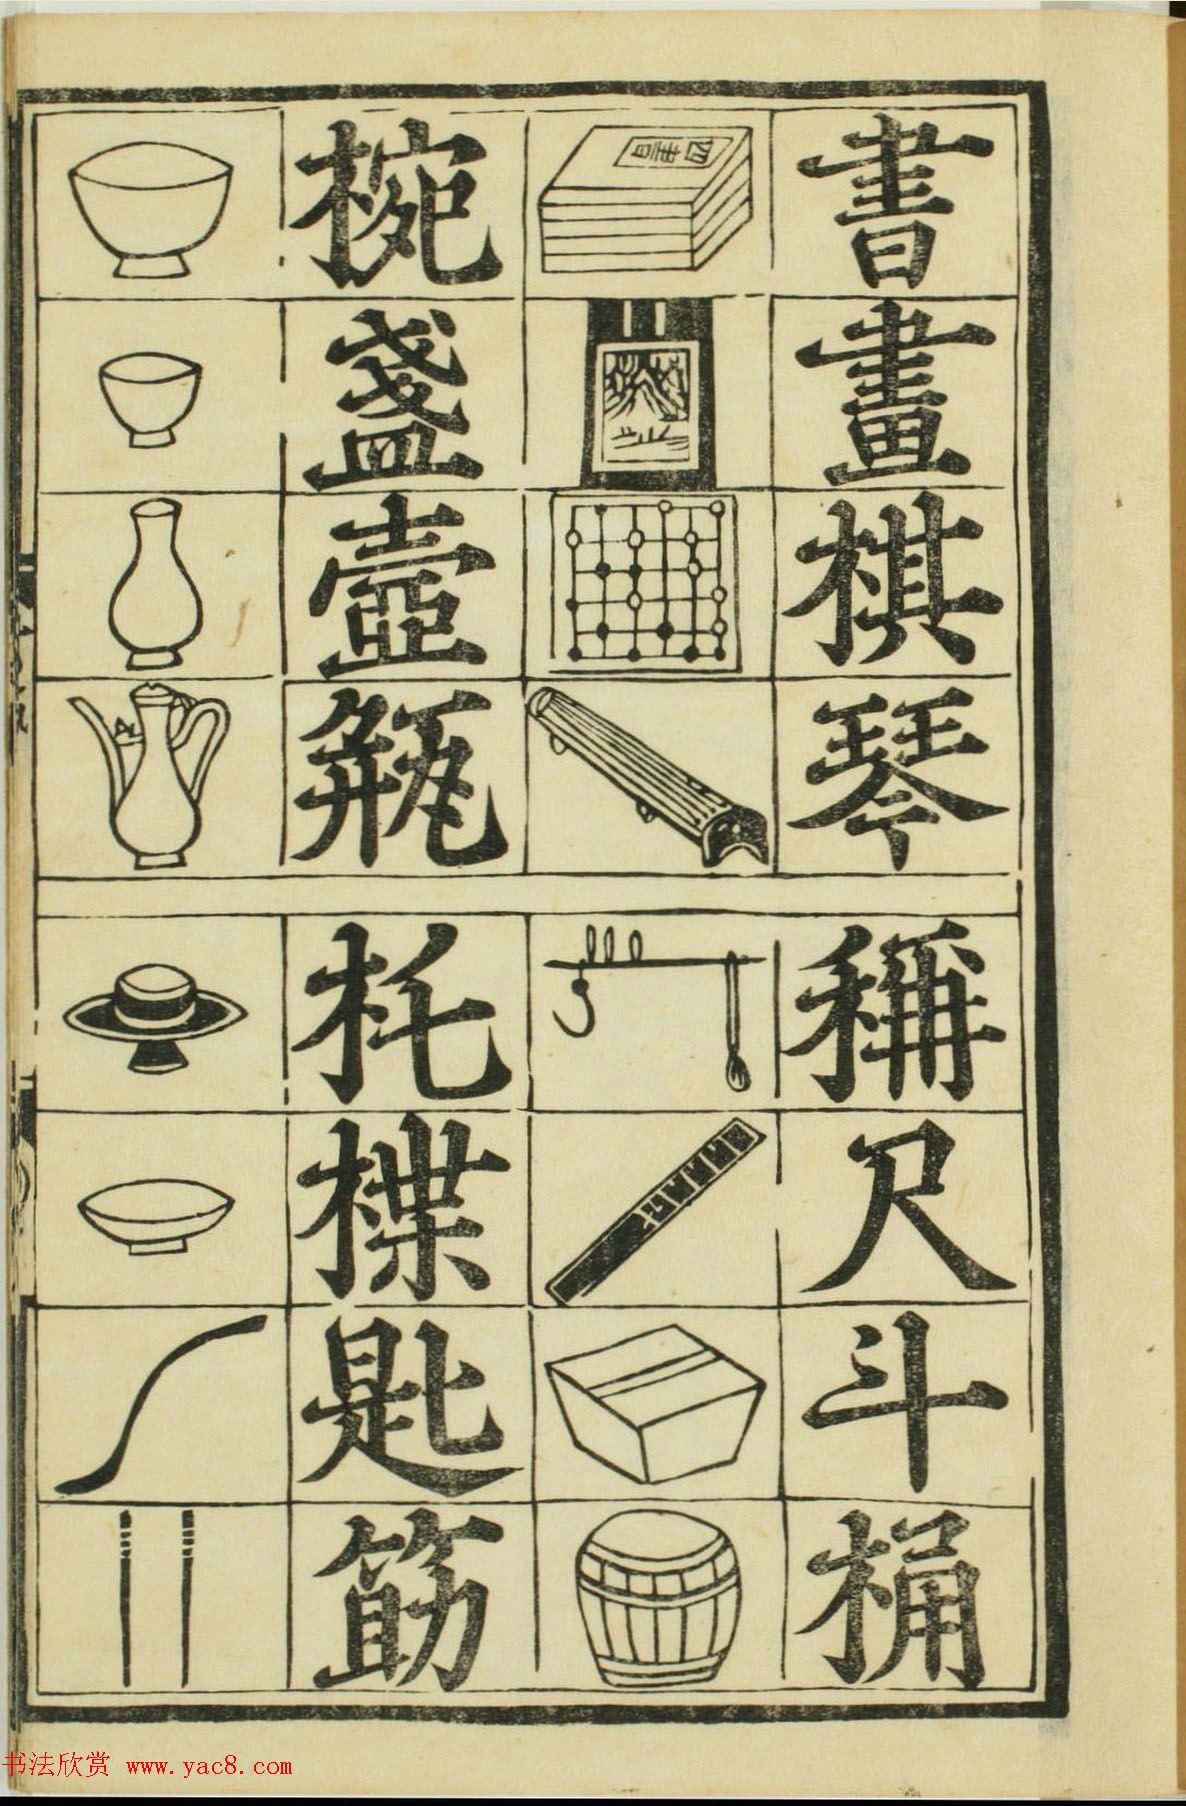 書畫棋琴
稱尺斗桶
四書
椀盞壺瓶
托楪匙筯
书法欣赏 www.yac8.com